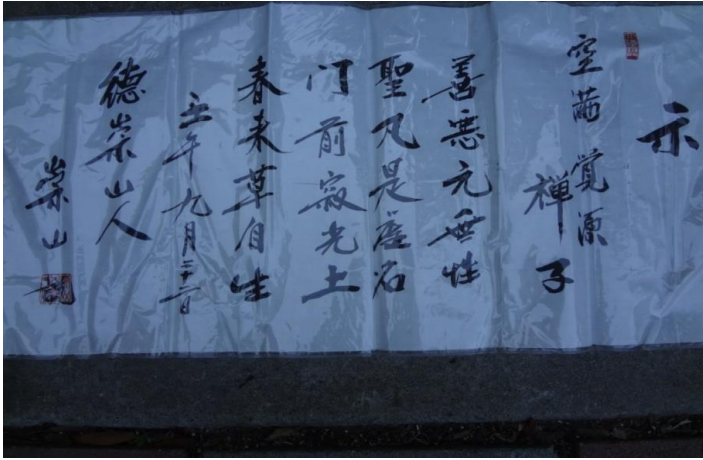 示
空 覺源
禪子
善惡元無性
聖凡是虛名
门前寂光土
春來草自生
壬午九月二十二日
德崇山人
崇山